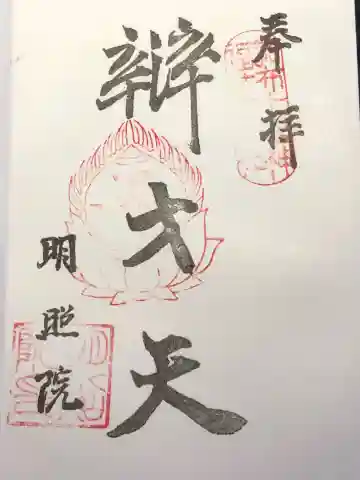 奉拝
辯才天
明照院